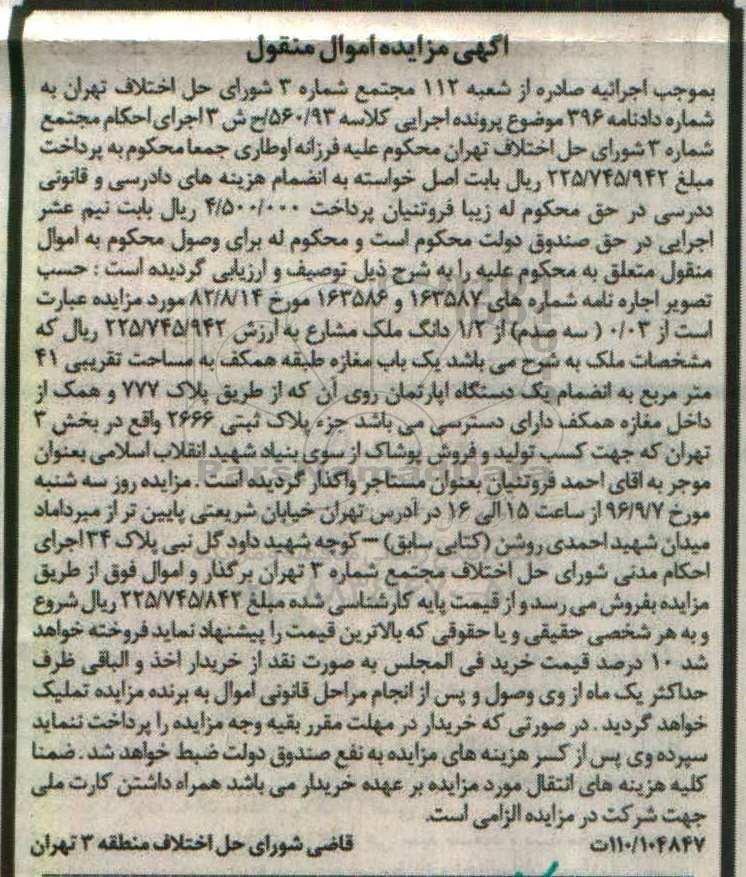 آگهی مزایده اموال منقول
بموجب اجرائیه صادره از شعبه ۱۱۲ مجتمع شماره ۳ شورای حل اختلاف تهران به
شماره دادنامه ۳۹۶ موضوع پرونده اجرایی کلاسه ۵۶۰/۹۳/ح ش ۳ اجرای احکام مجتمع
شماره ۳ شورای حل اختلاف تهران محکوم علیه فرزانه اوطاری جمعا محکوم به پرداخت
مبلغ ۲۲۵/۷۴۵/۹۴۲ ریال بابت اصل خواسته به انضمام هزینه های دادرسی و قانونی
ددرسی در حق محکوم له زیبا فروتنیان پرداخت ۴/۵۰۰/۰۰۰ ریال بابت نیم عشر
اجرایی در حق صندوق دولت محکوم است و محکوم له برای وصول محکوم به اموال
منقول متعلق به محکوم علیه را به شرح ذیل توصیف و ارزیابی گردیده است : حسب
تصویر اجاره نامه شماره های ۱۶۳۵۸۷ و ۱۶۳۵۸۶ مورخ ۸۲/۸/۱۴ مورد مزایده عبارت
است از ۰/۰۳ ( سه صدم) از ۱/۲ دانگ ملک مشارع به ارزش ۲۲۵/۷۴۵/۹۴۲ ریال که
مشخصات ملک به شرح می باشد یک باب مغازه طبقه همکف به مساحت تقریبی ۴۱
متر مربع به انضمام یک دستگاه اپارتمان روی آن که از طریق پلاک ۷۷۷ و همک از
داخل مغازه همکف دارای دسترسی می باشد جزء پلاک ثبتی ۲۶۶۶ واقع در بخش ۳
تهران که جهت کسب تولید و فروش پوشاک از سوی بنیاد شهید انقلاب اسلامی بعنوان
موجر به اقای احمد فروتنیان بعنوان مستاجر واگذار گردیده است . مزایده روز سه شنبه
مورخ ۹۶/۹/۷ از ساعت ۱۵ الی ۱۶ در آدرس تهران خیابان شریعتی پایین تر از میرداماد
میدان شهید احمدی روشن (کتابی سابق) --- کوچه شهید داود گل نبی پلاک ۳۴ اجرای
احکام مدنی شورای حل اختلاف مجتمع شماره ۳ تهران برگذار و اموال فوق از طریق
مزایده بفروش می رسد و از قیمت پایه کارشناسی شده مبلغ ۲۲۵/۷۴۵/۸۴۲ ریال شروع
و به هر شخصی حقیقی و یا حقوقی که بالاترین قیمت را پیشنهاد نماید فروخته خواهد
شد ۱۰ درصد قیمت خرید فی المجلس به صورت نقد از خریدار اخذ و الباقی ظرف
حداکثر یک ماه از وی وصول و پس از انجام مراحل قانونی اموال به برنده مزایده تملیک
خواهد گردید . در صورتی که خریدار در مهلت مقرر بقیه وجه مزایده را پرداخت ننماید
سپرده وی پس از کسر هزینه های مزایده به نفع صندوق دولت ضبط خواهد شد . ضمنا
کلیه هزینه های انتقال مورد مزایده بر عهده خریدار می باشد همراه داشتن کارت ملی
جهت شرکت در مزایده الزامی است.
۱۱۰/۱۰۴۸۴۷ت قاضی شورای حل اختلاف منطقه ۳ تهران
ParsNamadData